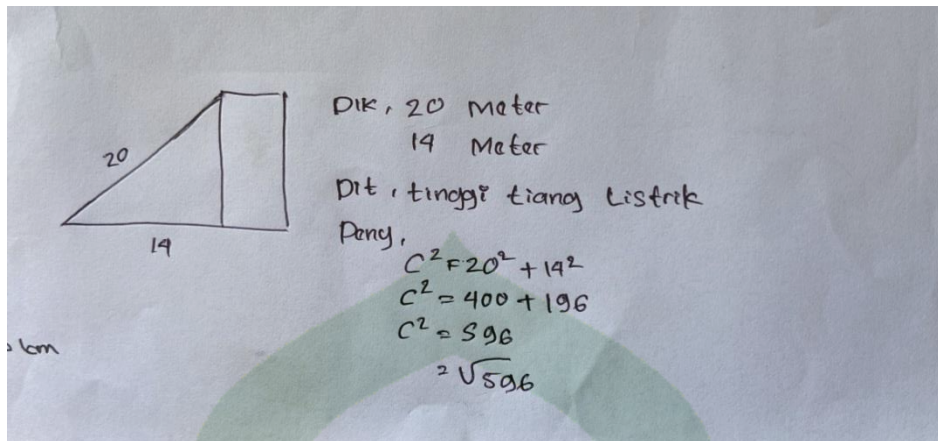 20
14
Dik, 20 Meter
14 Meter
Dit, tinggi tiang listrik
Peny,
C² = 20² + 14²
C² = 400 + 196
C² = 596
²√596
km